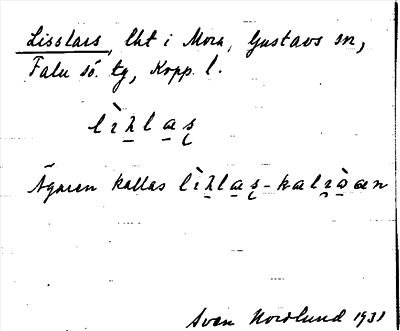 Lisslars, lht i Mora, Gustavs sn,
Falu sö. tg, Kopp. l.
lìʜ̠la̠ʂ
Ägaren kallas lìʜ̠la̠ʂ-
Sven Nordlund 1931